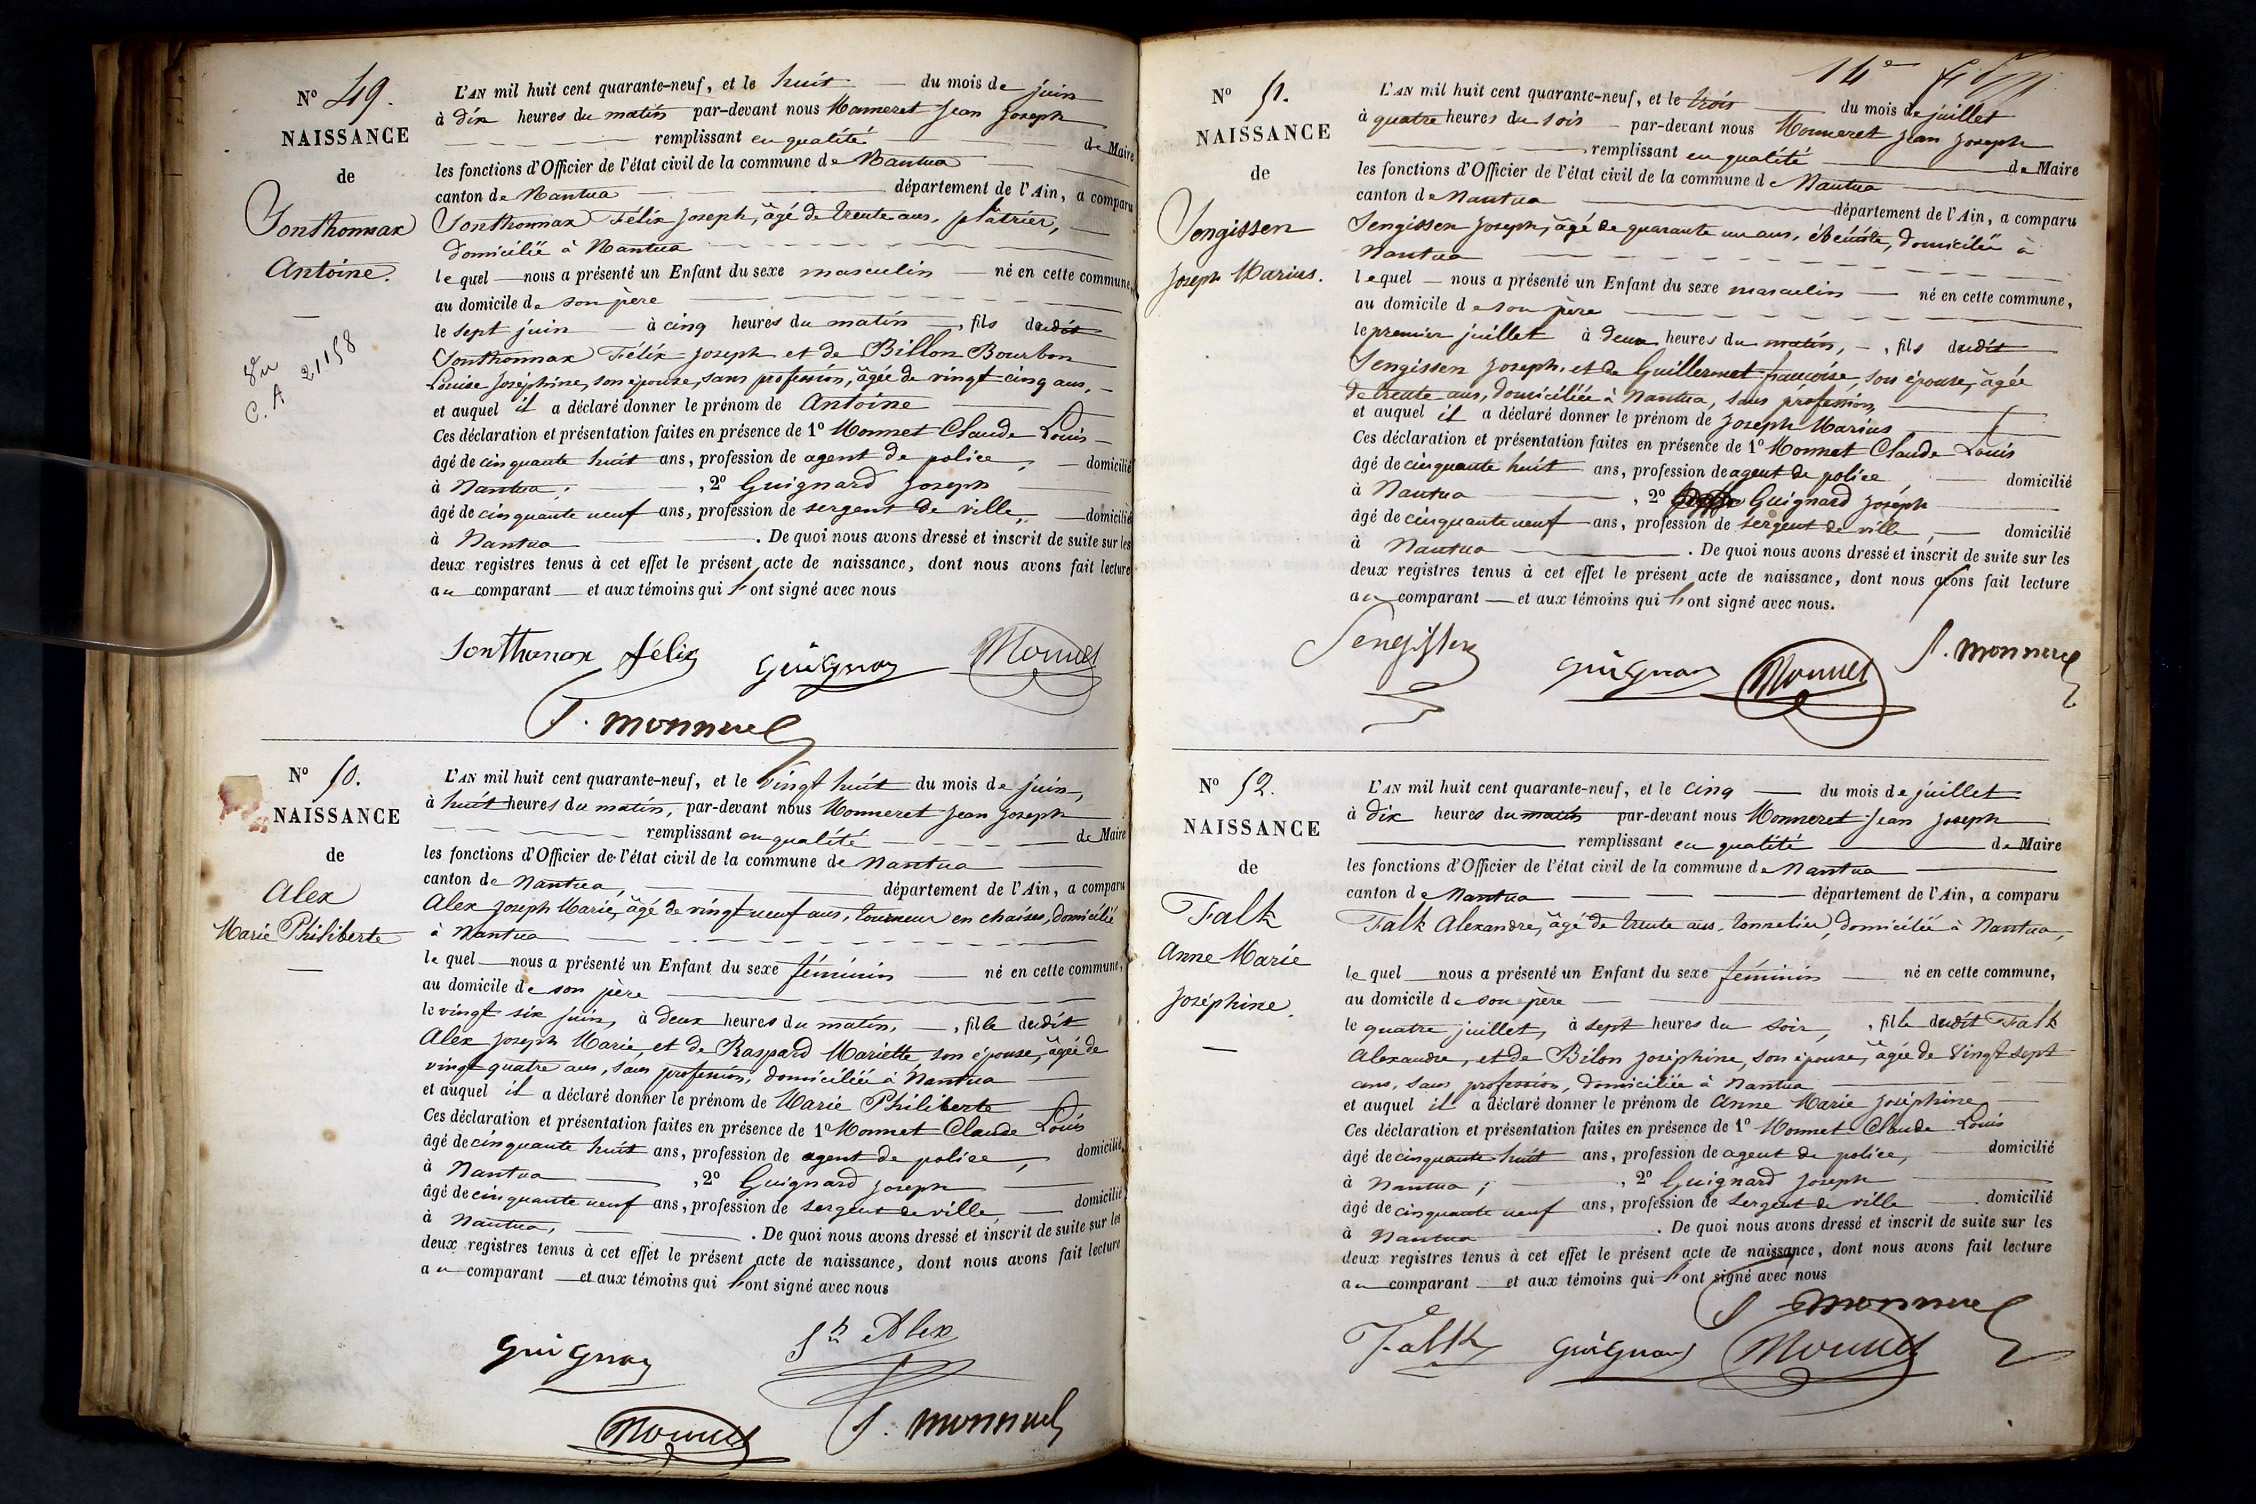 N° 49.
NAISSANCE
de
Sonthonnax
Antoine.
Vu
C. A 21158
L'AN mil huit cent quarante-neuf, et le huit du mois de juin
à dix heures du matin par-devant nous Monneret Jean Joseph
remplissant en qualité de Maire
les fonctions d'Officier de l'état civil de la commune de Nantua
canton de Nantua département de l'Ain, a comparu
Sonthonnax Félix Joseph, âgé de trente ans, plâtrier,
domicilié à Nantua
lequel nous a présenté un Enfant du sexe masculin né en cette commune,
au domicile de son père
le sept juin à cinq heures du matin, fils dudit
Sonthonnax Félix Joseph et de Billon Bourbon
Louise Joséphine, son épouse, sans profession, âgée de vingt cinq ans,
et auquel il a déclaré donner le prénom de Antoine
Ces déclaration et présentation faites en présence de 1° Monnet Claude Louis
âgé de cinquante huit ans, profession de agent de police, domicilié
à Nantua; , 2° Guignard Joseph
âgé de cinquante neuf ans, profession de sergent de ville, domicilié
à Nantua . De quoi nous avons dressé et inscrit de suite sur les
deux registres tenus à cet effet le présent acte de naissance, dont nous avons fait lecture
au comparant et aux témoins qui l'ont signé avec nous
Sonthonax félix Guignar Monnet
J. Monneret
N° 50.
NAISSANCE
de
Alex
Marie Philiberte
L'AN mil huit cent quarante-neuf, et le vingt huit du mois de juin,
à huit heures du matin, par-devant nous Monneret Jean Joseph
remplissant en qualité de Maire
les fonctions d'Officier de l'état civil de la commune de Nantua
canton de Nantua, département de l'Ain, a comparu
Alex Joseph Marie, âgé de vingt neuf ans, tourneur en chaises, domicilié
à Nantua
lequel nous a présenté un Enfant du sexe féminin né en cette commune,
au domicile de son père
le vingt six juin, à deux heures du matin, , fille dudit
Alex Joseph Marie, et de Raspard Mariette son épouse, âgée de
vingt quatre ans, sans profession, domiciliée à Nantua
et auquel il a déclaré donner le prénom de Marie Philiberte
Ces déclaration et présentation faites en présence de 1° Monnet Claude Louis
âgé de cinquante huit ans, profession de agent de police, domicilié
à Nantua , 2° Guignard Joseph
âgé de cinquante neuf ans, profession de sergent de ville, domicilié
à Nantua, . De quoi nous avons dressé et inscrit de suite sur les
deux registres tenus à cet effet le présent acte de naissance, dont nous avons fait lecture
au comparant et aux témoins qui l'ont signé avec nous
Guignar Jh Alex
Monnet J. Monneret
14e
N° 51.
NAISSANCE
de
Sengissen
Joseph Marius.
L'AN mil huit cent quarante-neuf, et le trois du mois de juillet
à quatre heures du soir par-devant nous Monneret Jean Joseph
remplissant en qualité de Maire
les fonctions d'Officier de l'état civil de la commune de Nantua
canton de Nantua département de l'Ain, a comparu
Sengissen Joseph, âgé de quarante un ans, ébéniste, domicilié à
Nantua
lequel nous a présenté un Enfant du sexe masculin né en cette commune,
au domicile de son père
le premier juillet à deux heures du matin, , fils dudit
Sengissen Joseph, et de Guillermet françoise, son épouse, âgée
de trente ans, domiciliée à Nantua, sans profession,
et auquel il a déclaré donner le prénom de Joseph Marius
Ces déclaration et présentation faites en présence de 1° Monnet Claude Louis
âgé de cinquante huit ans, profession de agent de police domicilié
à Nantua , 2° Guignard Joseph
âgé de cinquante neuf ans, profession de sergent de ville, domicilié
à Nantua . De quoi nous avons dressé et inscrit de suite sur les
deux registres tenus à cet effet le présent acte de naissance, dont nous avons fait lecture
au comparant et aux témoins qui l'ont signé avec nous.
Sengissen Guignar Monnet J. Monneret
N° 52.
NAISSANCE
de
Falk
Anne Marie
Joséphine.
L'AN mil huit cent quarante-neuf, et le cinq du mois de juillet
à dix heures du matin par-devant nous Monneret Jean Joseph
remplissant en qualité de Maire
les fonctions d'Officier de l'état civil de la commune de Nantua
canton de Nantua département de l'Ain, a comparu
Falk Alexandre, âgé de trente ans, tonnelier, domicilié à Nantua,
lequel nous a présenté un Enfant du sexe féminin né en cette commune,
au domicile de son père
le quatre juillet, à sept heures du soir, , fille dudit Falk
Alexandre, et de Bilon Joséphine, son épouse, âgée de vingt sept
ans, sans profession, domiciliée à Nantua
et auquel il a déclaré donner le prénom de Anne Marie Joséphine
Ces déclaration et présentation faites en présence de 1° Monnet Claude Louis
âgé de cinquante huit ans, profession de agent de police, domicilié
à Nantua; , 2° Guignard Joseph
âgé de cinquante neuf ans, profession de sergent de ville domicilié
à Nantua . De quoi nous avons dressé et inscrit de suite sur les
deux registres tenus à cet effet le présent acte de naissance, dont nous avons fait lecture
au comparant et aux témoins qui l'ont signé avec nous
J Monneret
Falk Guignar Monnet